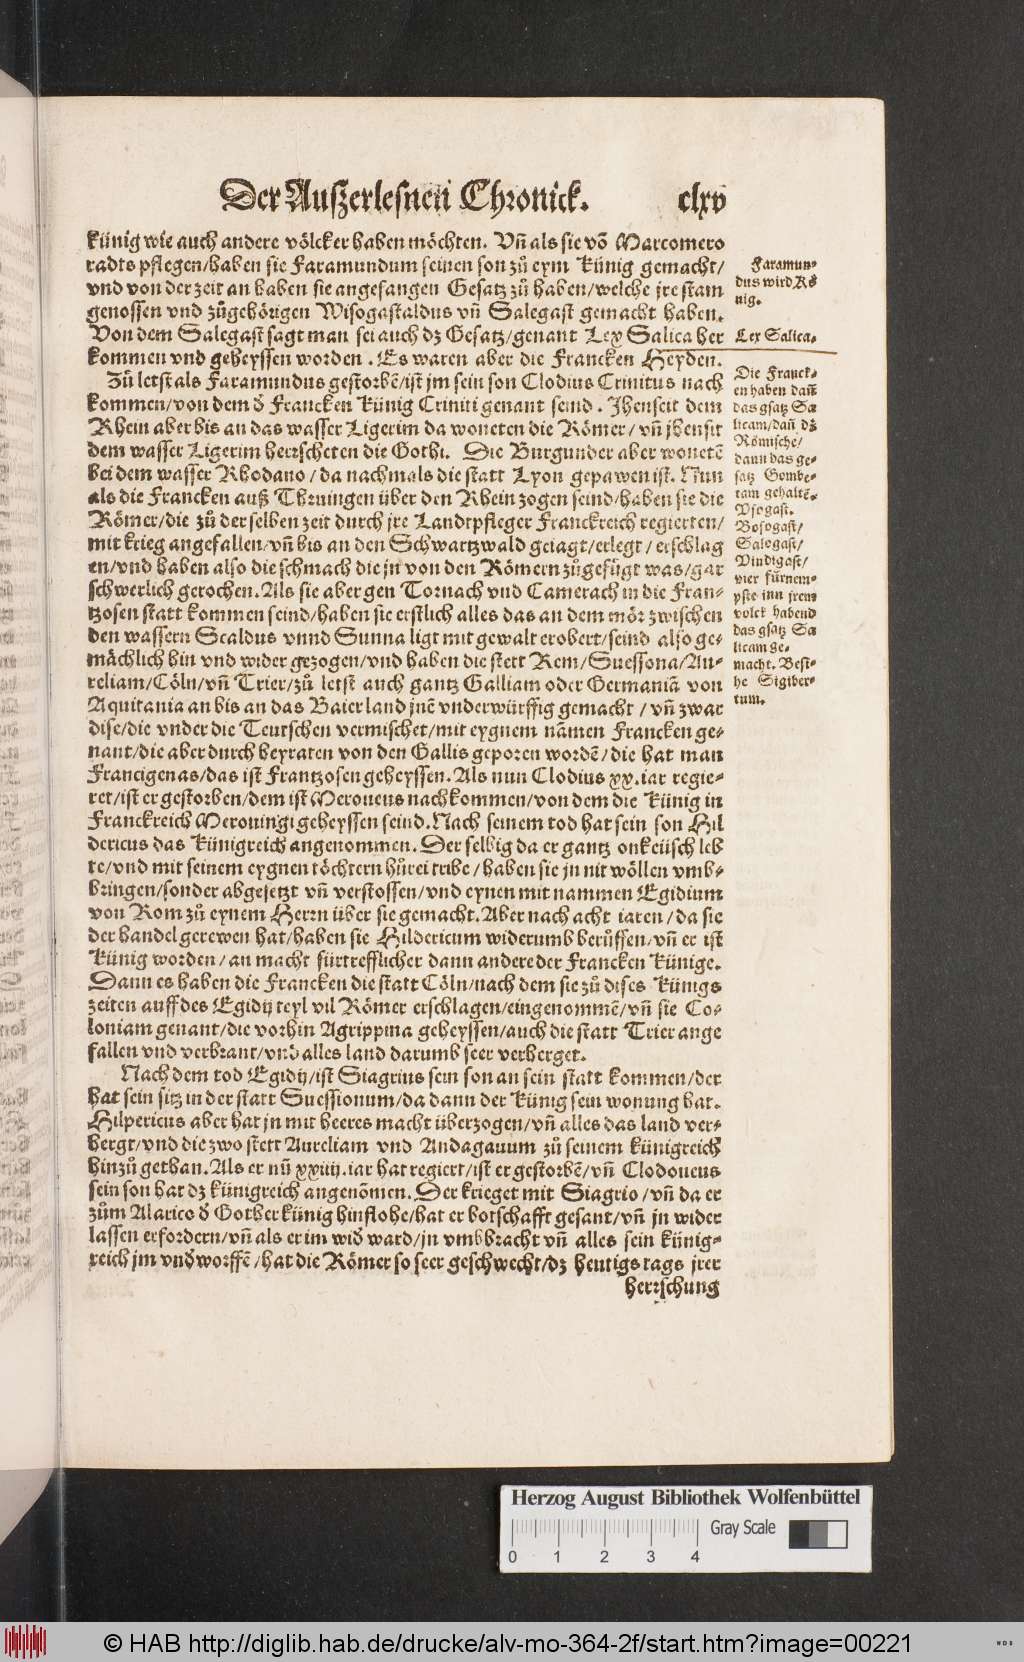 Der Außerlesnen Chronick. clxv
künig wie auch andere völcker haben möchten. Vñ als sie võ Marcomero
radts pflegen/haben sie Faramundum seinen son zů eym Künig gemacht/
vnd von der zeit an haben sie angefangen Gesatz zů haben/welche jre stam
genossen vnd zůgehörigen Wisogastaldus vñ Salegast gemacht haben.
Von dem Salegast sagt man sei auch dz Gesatz/genant Lex Salica her
kommen vnd geheyssen worden. Es waren aber die Francken Heyden.
Zů letst als Faramundus gestorbẽ/ist jm sein son Clodius Crinitus nach
kommen/von dem d̕ Francken Künig Criniti genant seind. Jhenseit dem
Rhein aber bis an das wasser Ligerim da woneten die Römer/vñ jhensit
dem wasser Ligerim herrscheten die Gothi. Die Burgunder aber wonetẽ
bei dem wasser Rhodano/da nachmals die statt Lyon gepawen ist. Nun
als die Francken auß Thringen über den Rhein zogen seind/haben sie die
Römer/die zů der selben zeit durch jre Landtpfleger Franckreich regierten/
mit krieg angefallen/vñ bis an den Schwartzwald geiagt/erlegt/erschlag
en/vnd haben also die schmach die jn von den Römern zůgefügt was/gar
schwerlich gerochen. Als sie aber gen Tornach vnd Camerach in die Fran-
tzosen statt kommen seind/haben sie erstlich alles das an dem mör zwischen
den wassern Scaldus vnnd Sunna ligt mit gewalt erobert/seind also ge-
mächlich hin vnd wider gezogen/vnd haben die stett Rem/Suessona/Au-
reliam/Cöln/vñ Trier/zů letst auch gantz Galliam oder Germaniã von
Aquitania an bis an das Baierland jnẽ vnderwürffig gemacht/vñ zwar
dise/die vnder die Teutschen vermischet/mit eygnem nãmen Francken ge-
nant/die aber durch heyraten von den Gallis geporen wordẽ/die hat man
Francigenas/das ist Frantzosen geheyssen. Als nun Clodius xx. iar regie-
ret/ist er gestorben/dem ist Meroueus nachkommen/von dem die Künig in
Franckreich Merouingi geheyssen seind. Nach seinem tod hat sein son Hil
dericus das Künigreich angenommen. Der selbig da er gantz onkeüsch leb
te/vnd mit seinem eygnen töchtern hůrei tribe/haben sie jn nit wöllen vmb-
bringen/sonder abgesetzt vñ verstossen/vnd eynen mit nammen Egidium
von Rom zů eynem Herrn über sie gemacht. Aber nach acht iaren/da sie
der handel gerewen hat/haben sie Hildericum widerumb berůffen/vñ er ist
Künig worden/an macht fürtrefflicher dann andere der Francken Künige.
Dann es haben die Francken die statt Cöln/nach dem sie zů dises Künigs
zeiten auff des Egidij teyl vil Römer erschlagen/eingenommẽ/vñ sie Co-
loniam genant/die vorhin Agrippina geheyssen/auch die statt Trier ange
fallen vnd verbrant/vnd alles land darumb seer verherget.
Nach dem tod Egidij/ist Siagrius sein son an sein statt kommen/der
hat sein sitz in der statt Suessionum/da dann der Künig sein wonung hat.
Hilpericus aber hat jn mit heeres macht überzogen/vñ alles das land ver-
hergt/vnd die zwo stett Aureliam vnd Andagauum zů seinem künigreich
hinzů gethan. Als er nũ xxiiij. iar hat regiert/ist er gestorbẽ/vñ Clodoueus
sein son hat dz künigreich angenõmen. Der krieget mit Siagrio/vñ da er
zům Alarico d̕ Gother künig hinflohe/hat er botschafft gesant/vñ jn wider
lassen erfordern/vñ als er im wid̕ ward/jn vmbbracht vñ alles sein künig-
reich jm vnd̕worffẽ/hat die Römer so seer geschwecht/dz heutigs tags jrer
herrschung
Faramun-
dus wird Kö
nig.
Lex Salica.
Die Franck-
en haben dañ
das gsatz Sa
licam/dañ dz
Römische/
dann das ge-
satz Gombe-
tam gehaltẽ.
Vsogast.
Bosogast/
Salogast/
Vindigast/
vier fürnem-
pste inn jrem
volck habend
das gsatz Sa
licam ge-
macht. Besi-
he Sigiber-
tum.
Herzog August Bibliothek Wolfenbüttel
Gray Scale
0 1 2 3 4
© HAB http://diglib.hab.de/drucke/alv-mo-364-2f/start.htm?image=00221